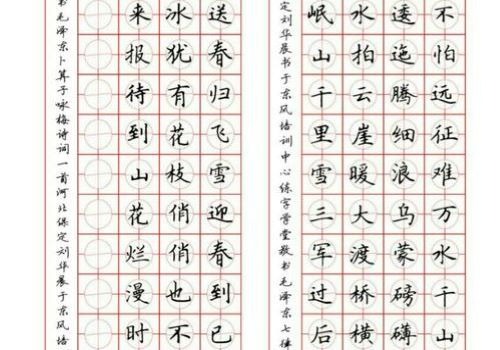 不怕远征难万水千山
逶迤腾细浪乌蒙磅礴
水拍云崖暖大渡桥横
岷山千里雪三军过后
定刘华晨书于东风培训中心练字学堂敬书毛泽东七律
送春归飞雪迎春到已
冰犹有花枝俏俏也不
来报待到山花烂漫时
书毛泽东卜算子咏梅诗词一首河北保定刘华晨于东风培